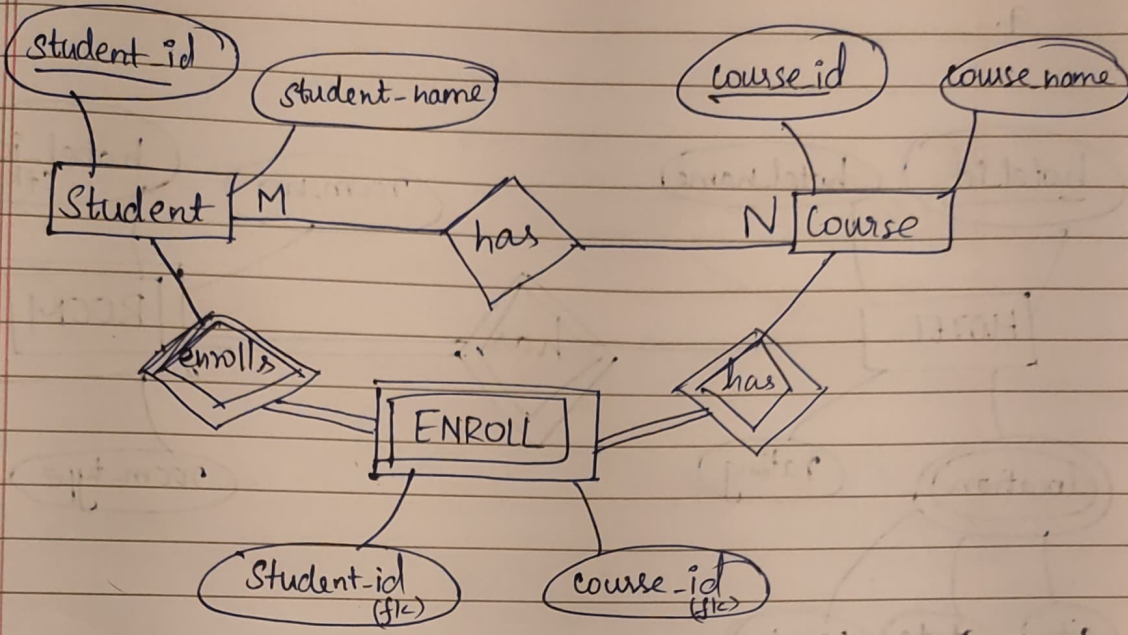 student_id
student_name
course_id
course_name
Student
M
has
N
Course
enrolls
has
ENROLL
Student_id
(fk)
course_id
(fk)